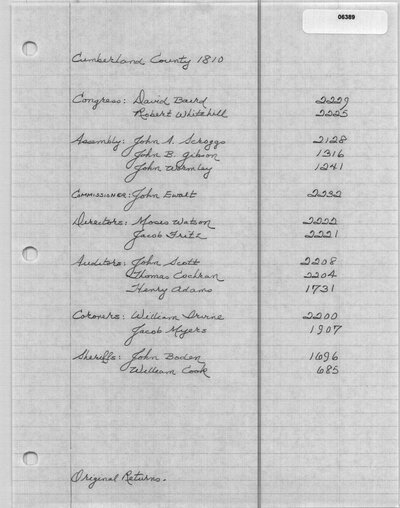 06389
Cumberland County 1810
Congress: David Baird 2229
Robert Whitehill 2225
Assembly: John A. Scroggs 2128
John B. Gibson 1316
John Wormley 1241
Commissioner: John Ewalt 2232
Directors: Moses Watson 2222
Jacob Fritz 2221
Auditors: John Scott 2208
Thomas Cochran 2204
Henry Adams 1731
Coroners: William Irvine 2200
Jacob Myers 1907
Sheriffs: John Boden 1696
William Cook 685
Original Returns.